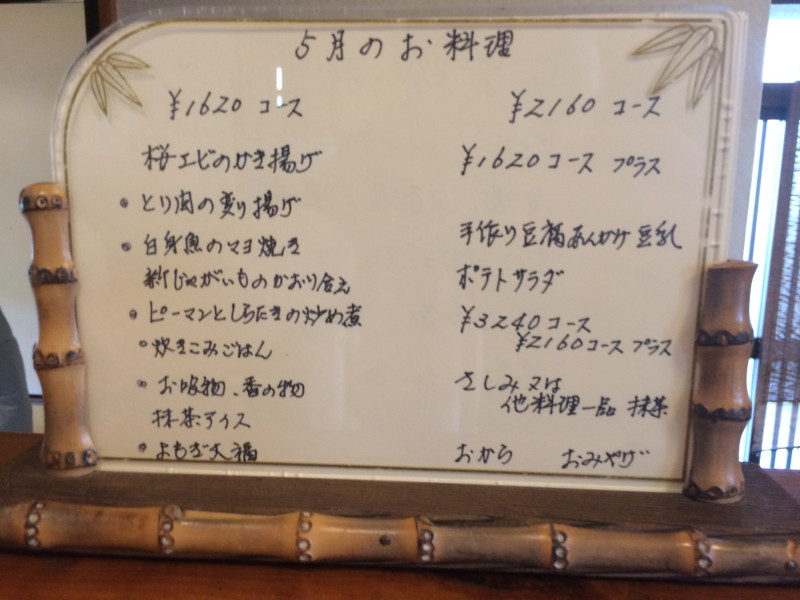 5月のお料理
¥1620 コース
桜エビのかき揚げ
・とり肉の変り揚げ
・白身魚のマヨ焼き
新じゃがいものかおり合え
・ピーマンとしらたきの炒め煮
・炊きこみごはん
・お吸物、香の物
抹茶アイス
・よもぎ大福
¥2160 コース
¥1620 コース プラス
手作り豆腐あんかけ 豆乳
ポテトサラダ
¥3240 コース
¥2160 コース プラス
さしみ 又は
他料理一品 抹茶
おから おみやげ